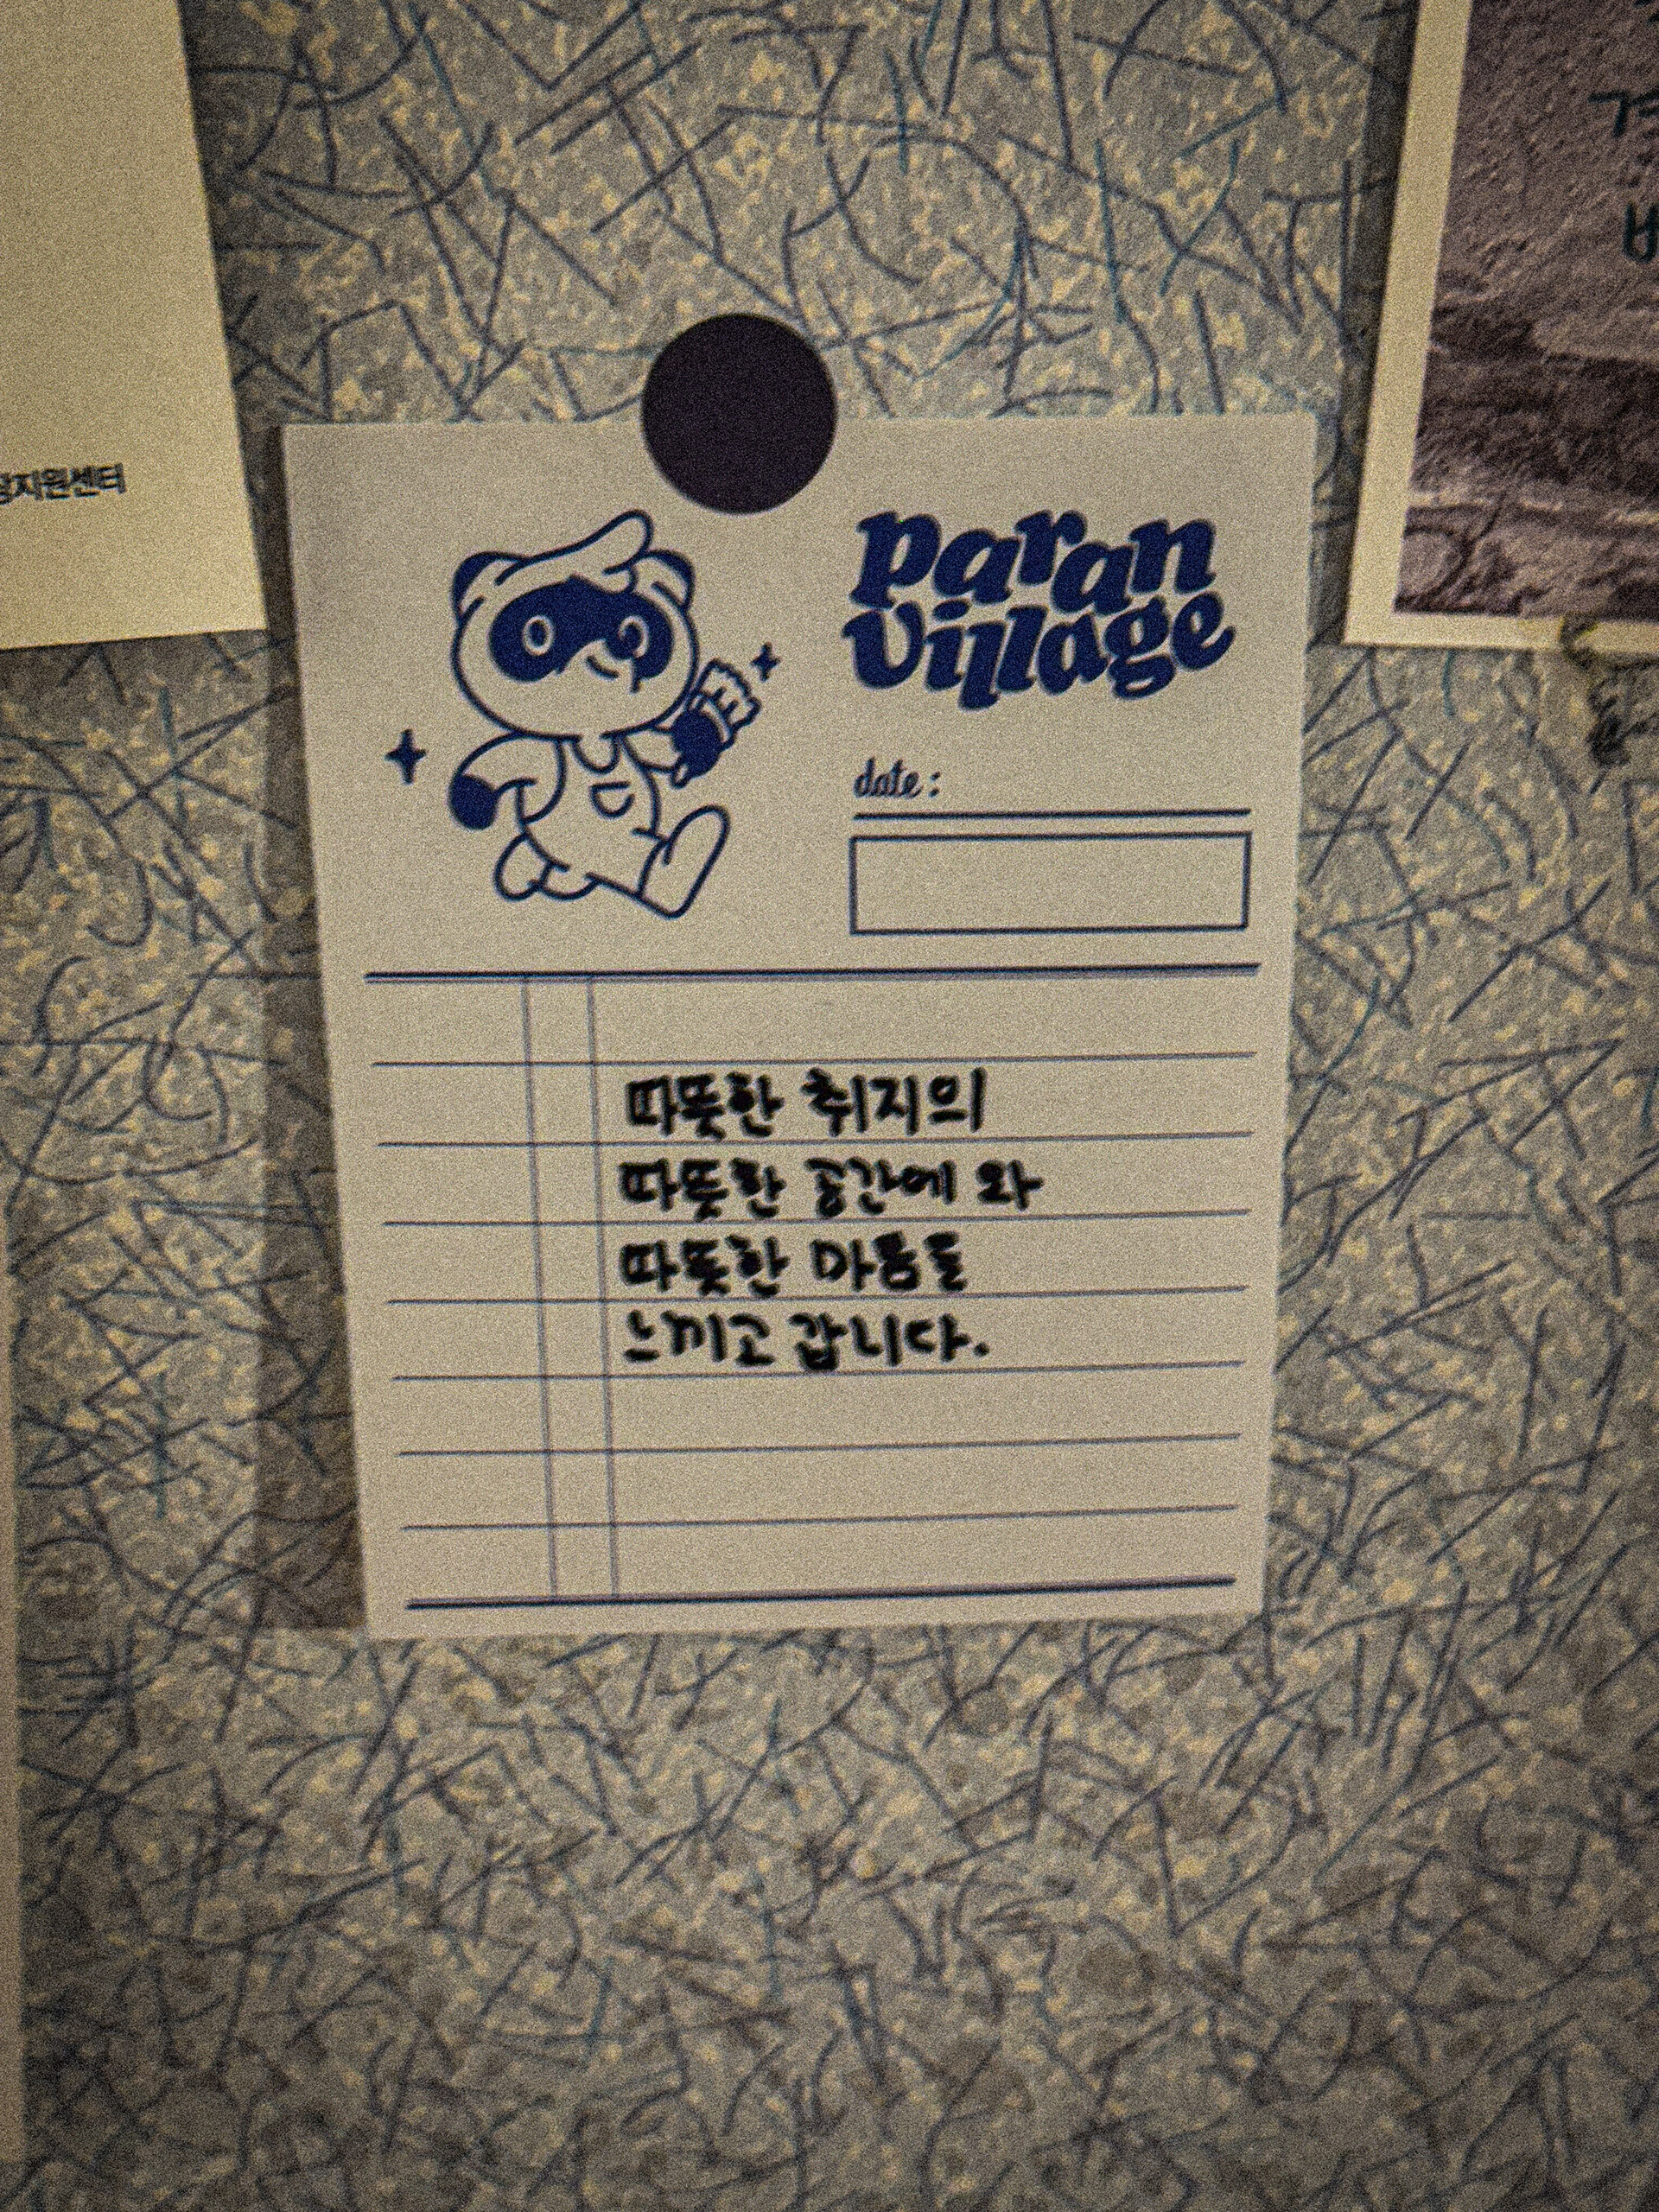 지원센터
paran
village
date:
따뜻한 취지의
따뜻한 공간에 와
따뜻한 마음을
느끼고 갑니다.